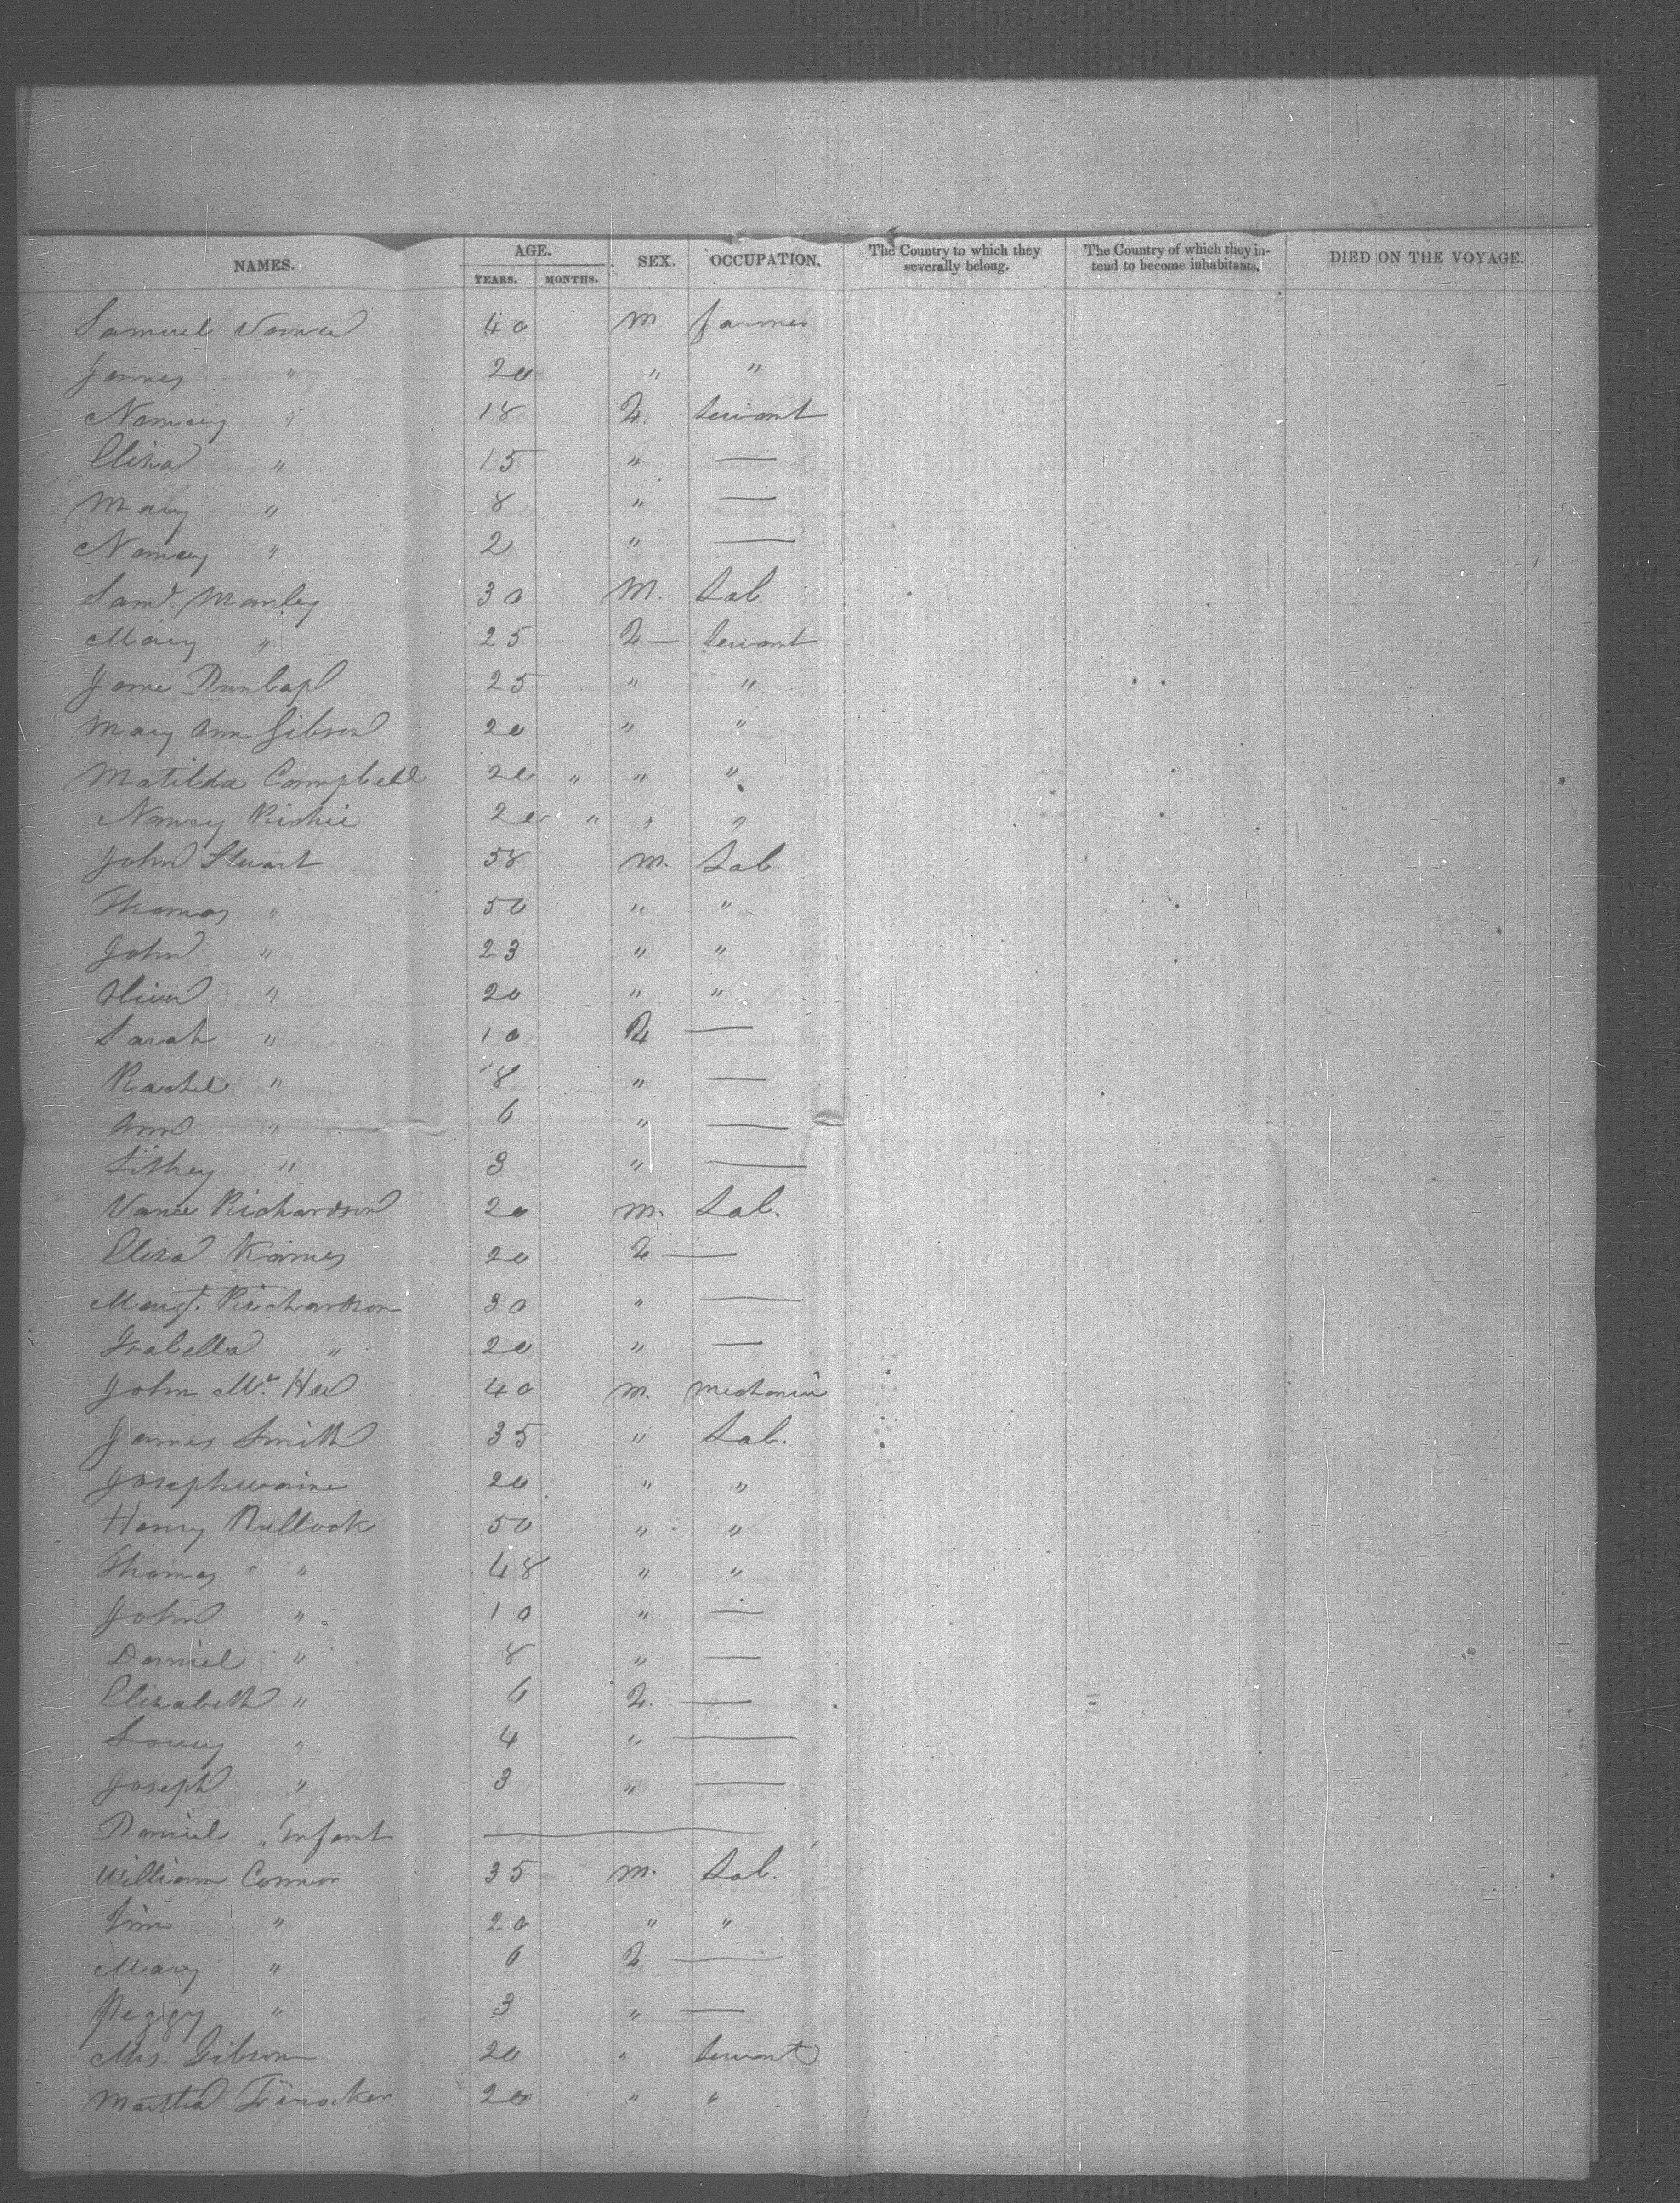 NAMES. AGE. YEARS. MONTHS. SEX. OCCUPATION. The Country to which they severally belong. The Country of which they intend to become inhabitants. DIED ON THE VOYAGE.
Samuel 40 M farmer
James " 20 " "
Nancy " 18 F. Servant
Eliza " 15 " —
Mary " 8 " —
Nancy " 2 " —
Saml. Manley 30 M. Lab.
Mary " 25 F — Servant
Jane Dunlap 25 " "
Mary Ann Gibson 20 " "
Matilda Campbell 20 " " "
Nancy Richie 20 " " "
John Stuart 58 M. Lab.
Thomas " 50 " "
John " 23 " "
Oliver " 20 " "
Sarah " 10 F —
Rachel " 8 " —
Ann " 6 " —
" 3 " —
Vance Richardson 20 M. Lab.
Eliza Karnes 20 F —
Margt. Richardson 30 " —
Isabella " 20 " —
John Mc. Hee 40 M. Mechanic
James Smith 35 " Lab.
Joseph 20 " "
Henry Bullock 50 " "
Thomas " 48 " "
John " 10 " —
Daniel " 8 " —
Elizabeth " 6 F. —
" 4 " —
Joseph " 3 " —
Daniel " Infant —
William Connor 35 M. Lab.
" 20 " "
Mary " 6 F —
Peggy " 3 " —
Mrs. Gibson 20 " Servant
Martha 20 " "